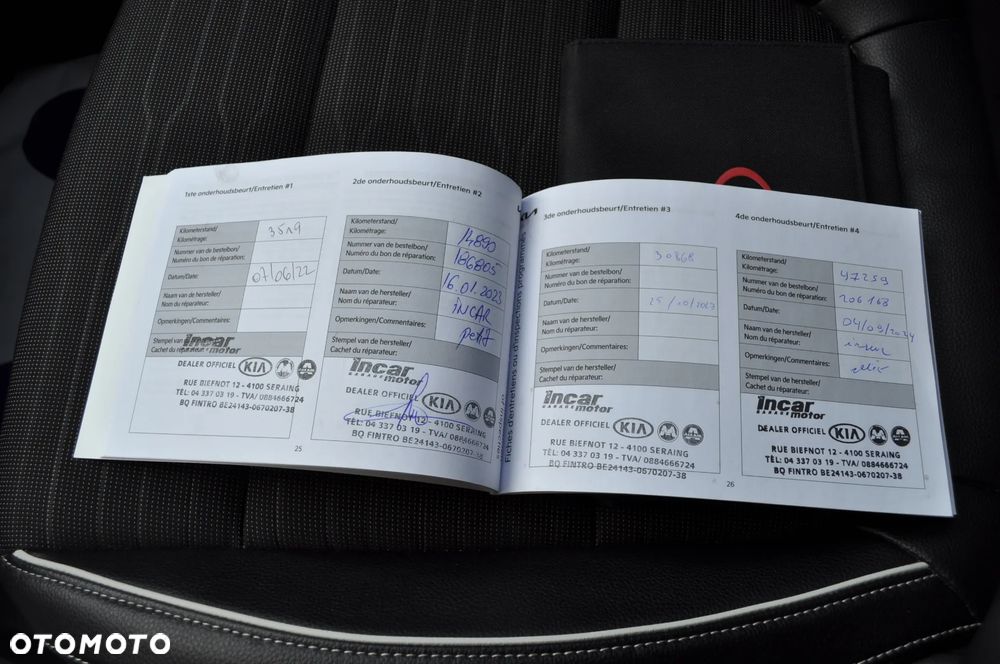 1ste onderhoudsbeurt/Entretien #1
Kilometerstand/
Kilométrage:
3519
Nummer van de bestelbon/
Numéro du bon de réparation:
Datum/Date:
07/06/22
Naam van de hersteller/
Nom du réparateur:
Opmerkingen/Commentaires:
Stempel van
Cachet du
incar
motor
DEALER OFFICIEL KIA
RUE BIEFNOT 12 - 4100 SERAING
TÉL: 04 337 03 19 - TVA/ 0884666724
BQ FINTRO BE24143-0670207-38
25
2de onderhoudsbeurt/Entretien #2
Kilometerstand/
Kilométrage:
14890
Nummer van de bestelbon/
Numéro du bon de réparation:
186805
Datum/Date:
16.01.2023
Naam van de hersteller/
Nom du réparateur:
INCAR
Opmerkingen/Commentaires:
Stempel van de hersteller/
Cachet du réparateur:
incar
motor
DEALER OFFICIEL KIA
RUE BIEFNOT 12 - 4100 SERAING
TÉL: 04 337 03 19 - TVA/ 0884666724
BQ FINTRO BE24143-0670207-38
Fiches d'entretiens ou d'inspections programmés
KIA
3de onderhoudsbeurt/Entretien #3
Kilometerstand/
Kilométrage:
30868
Nummer van de bestelbon/
Numéro du bon de réparation:
Datum/Date:
25/10/2023
Naam van de hersteller/
Nom du réparateur:
Opmerkingen/Commentaires:
Stempel van de hersteller/
Cachet du réparateur:
incar
GARAGE motor
DEALER OFFICIEL KIA
RUE BIEFNOT 12 - 4100 SERAING
TÉL: 04 337 03 19 - TVA/ 0884666724
BQ FINTRO BE24143-0670207-38
26
4de onderhoudsbeurt/Entretien #4
Kilometerstand/
Kilométrage:
47259
Nummer van de bestelbon/
Numéro du bon de réparation:
206168
Datum/Date:
04/09/2024
Naam van de hersteller/
Nom du réparateur:
Opmerkingen/Commentaires:
Stempel van de hersteller/
Cachet du réparateur:
incar
GARAGE motor
DEALER OFFICIEL KIA
RUE BIEFNOT 12 - 4100 SERAING
TÉL: 04 337 03 19 - TVA/ 0884666724
BQ FINTRO BE24143-0670207-38
OTOMOTO